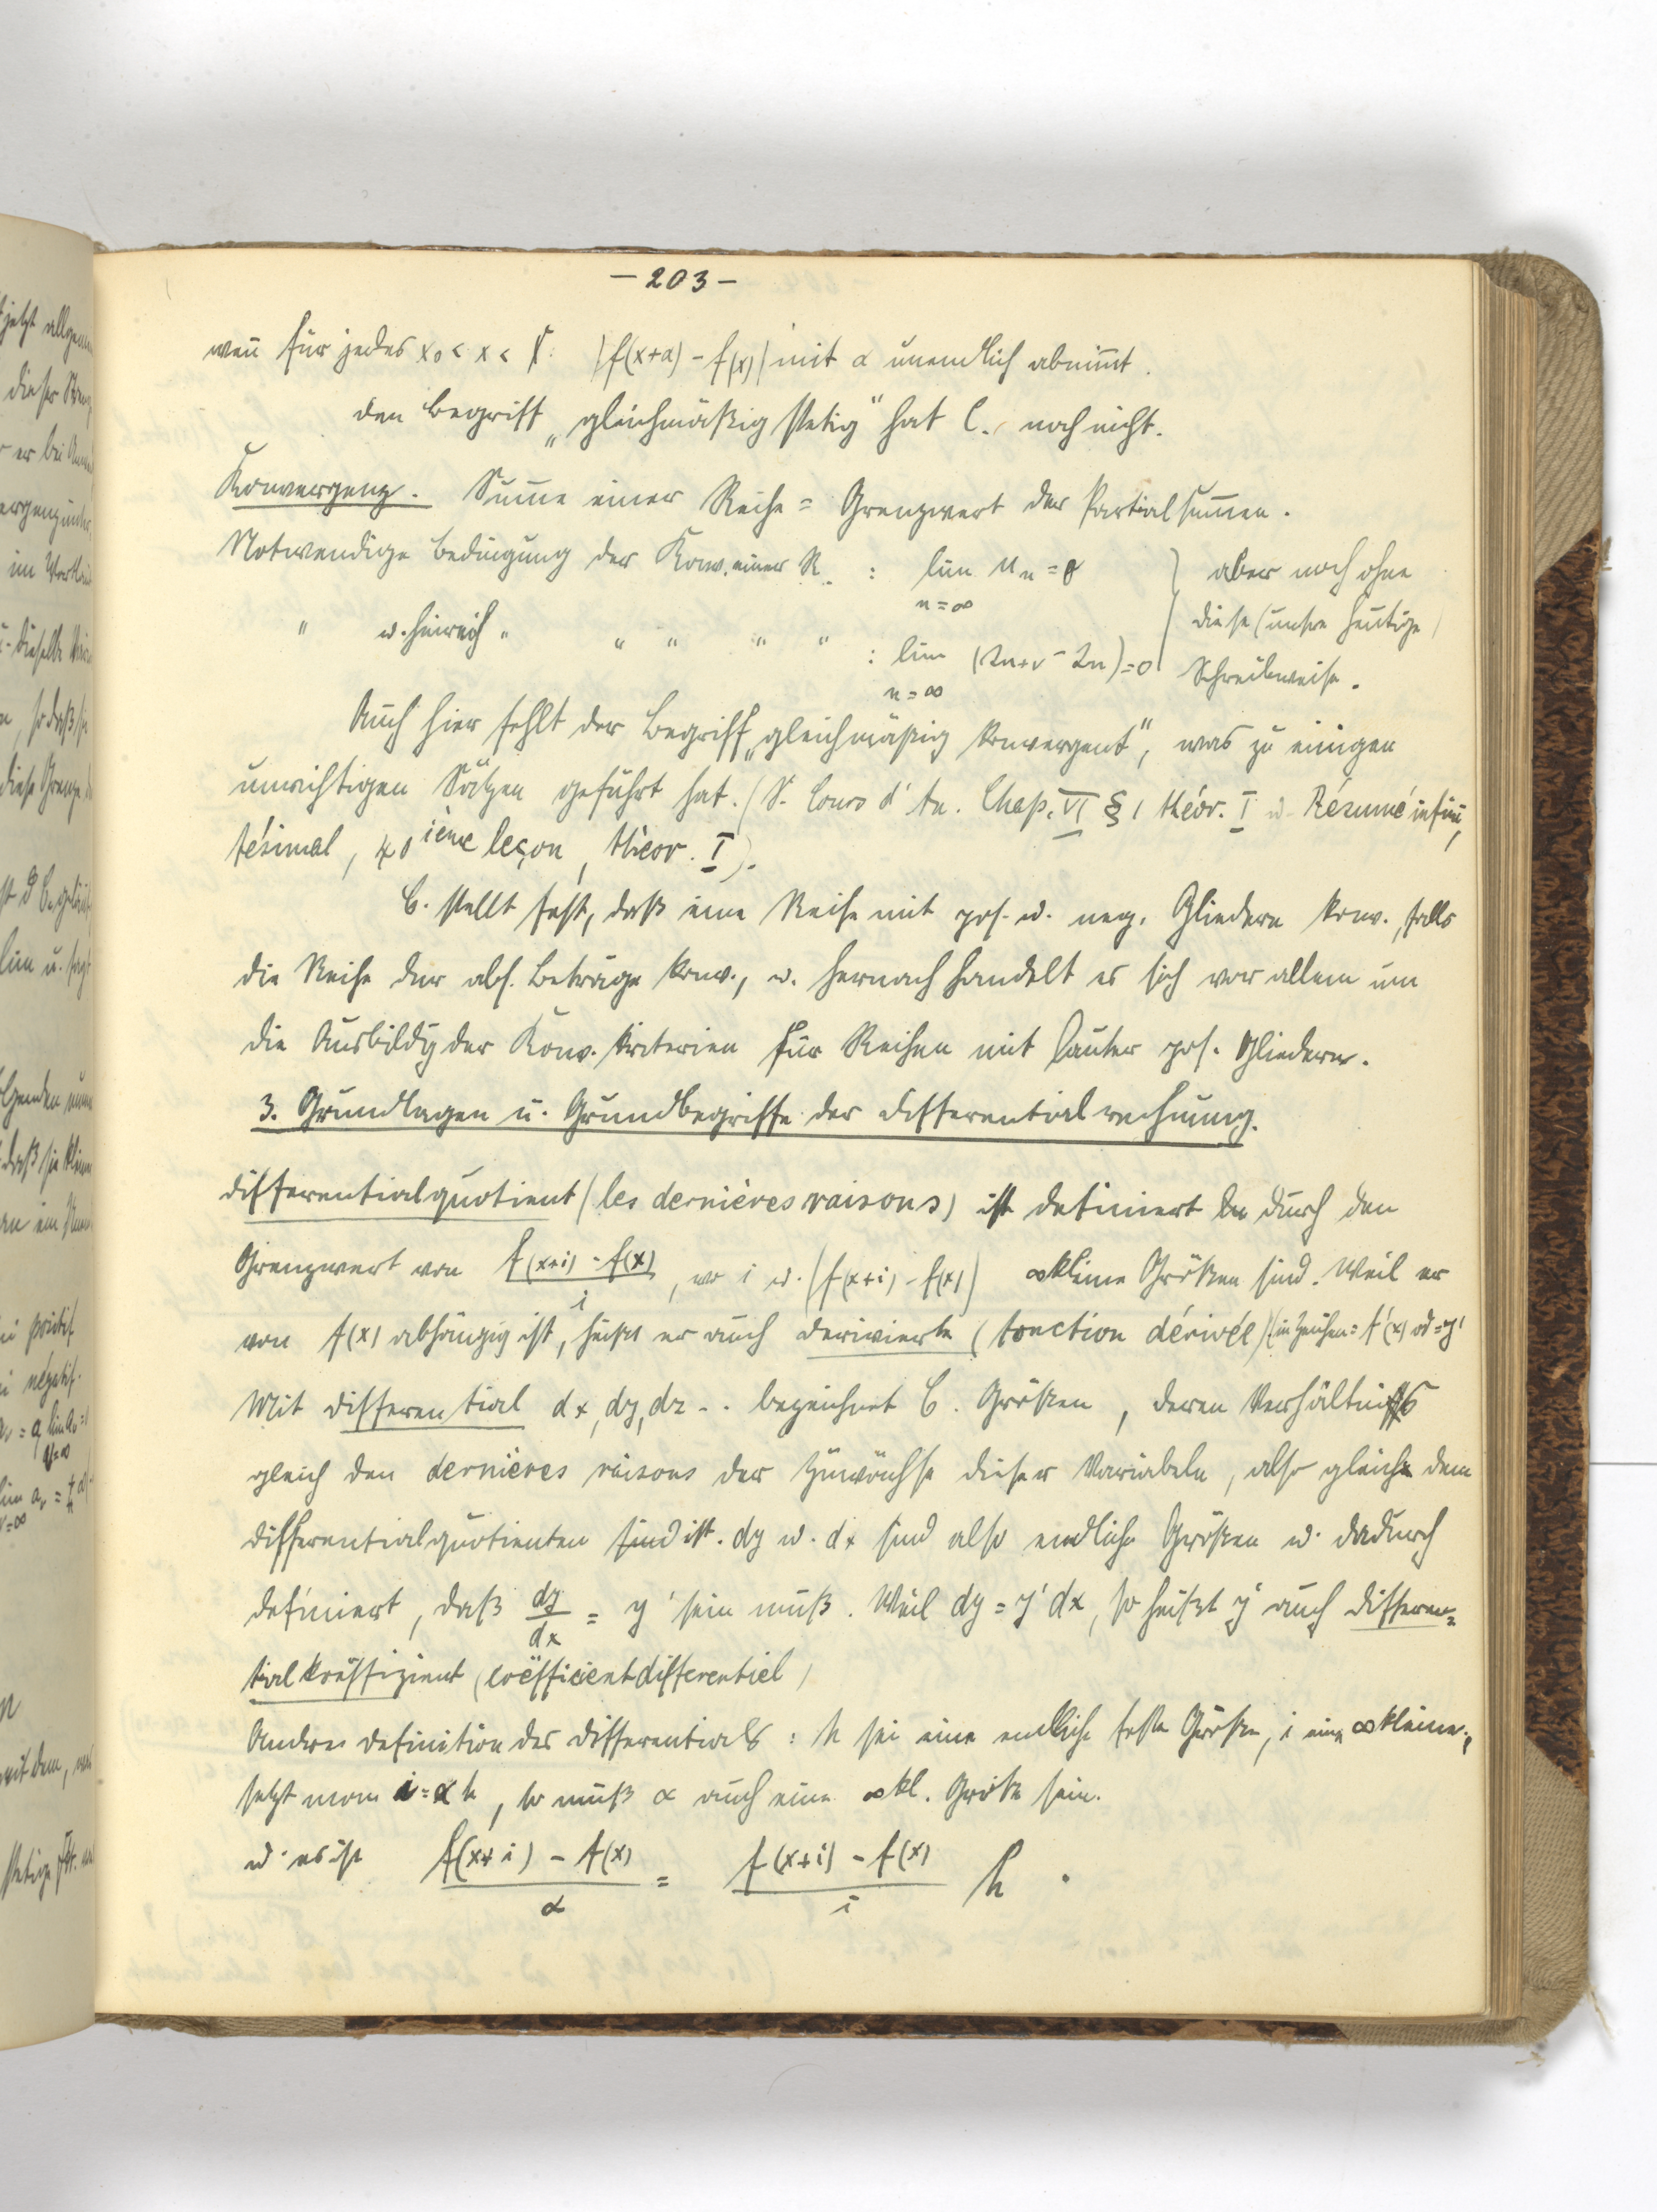 – 203 –
weñ für jedes x₀ < x < X: |f(x+α) – f(x)| mit α unendlich abnim̄t.
Den Begriff „gleichmäßig stetig“ hat C. noch nicht.
Konvergenz. Sum̄e einer Reihe = Grenzwert der Partialsum̄en.
Notwendige Bedingung der Konv. einer R. : lim uₙ = 0 } aber noch ohne
n=∞
" u. hinreich " " " " " : lim (Sₙ₊ᵥ – Sₙ) = 0 diese (unsre heutige)
n=∞ Schreibweise.
Auch hier fehlt der Begriff „gleichmäßig konvergent“, was zu einigen
unrichtigen Sätzen geführt hat. (S. Cours d'An. Chap. VI § 1 théor. I u. Résumé infini-
tésimal, 40ième leçon, théor. I).
C. stellt fest, daß eine Reihe mit pos. u. neg. Gliedern konv., falls
die Reihe der abs. Beträge konv., u. hernach handelt es sich vor allem um
die Ausbildg der Konv. kriterien für Reihen mit lauter pos. Gliedern.
3. Grundlagen u. Grundbegriffe der Differentialrechnung.
Differentialquotient (les dernières raisons) ist definiert durch den
Grenzwert von f(x+i) – f(x) / i, wo i u. (f(x+i) – f(x)) ∞kleine Größen sind. Weil er
von f(x) abhängig ist, heißt er auch Derivierte (fonction dérivée) (in Zeichen = f'(x) od = y'
Mit Differential dx, dy, dz .. bezeichnet C. Größen, deren Verhältnis
gleich den dernières raisons der Zuwächse dieser Variabeln, also gleich dem
Differentialquotienten sind ist. dy u. dx sind also endliche Größen u. dadurch
definiert, daß dy/dx = y' sein muß. Weil dy = y' dx, so heißt y' auch Differen-
tialkoëffizient (coëfficient differentiel)
Andere Definition des Differentials: h sei eine endliche feste Größe, i eine ∞kleine;
setzt man i = αh, so muß α auch eine ∞kl. Größe sein.
u. es ist f(x+i) – f(x) / α = f(x+i) – f(x) / i h .